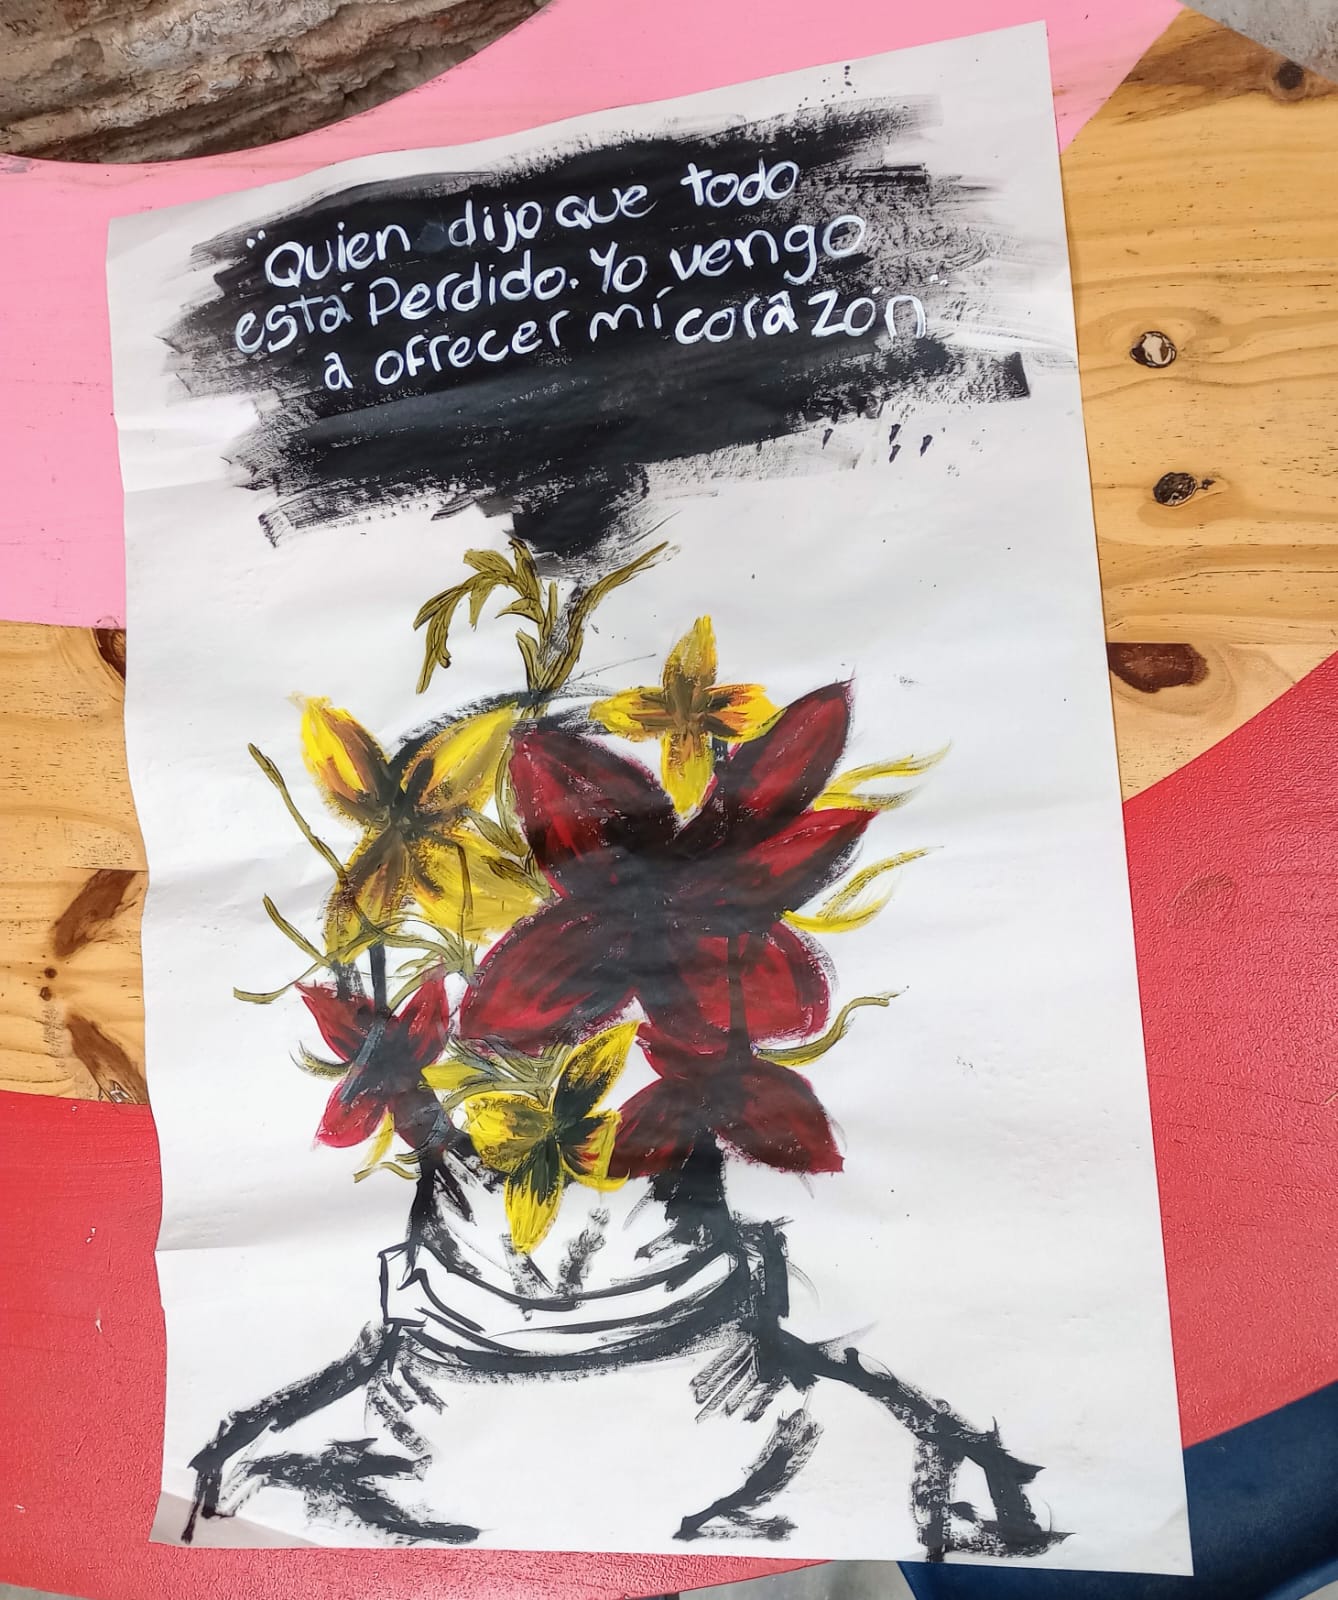 "Quien dijo que todo
está Perdido. Yo vengo
a ofrecer mi corazón"